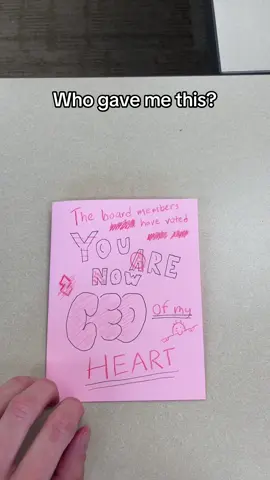 Who gave me this?
The board members
have voted
YOU ARE
NOW
CEO
of my
HEART